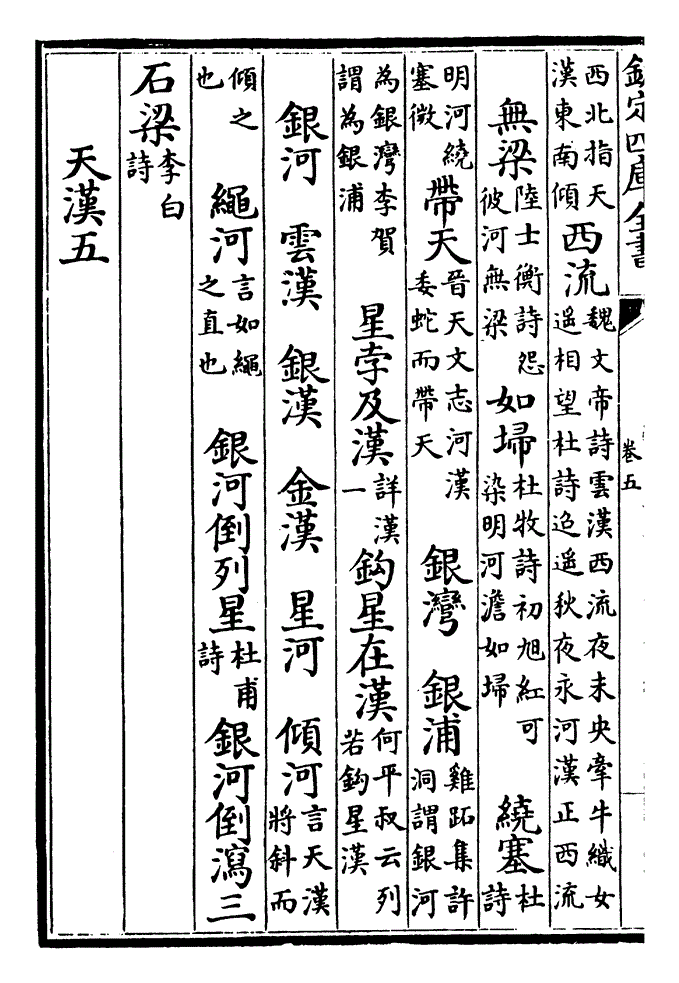 欽定四庫全書 卷五
西北指天漢東南傾 西流 魏文帝詩雲漢西流夜未央牽牛織女遥相望杜詩迢遥秋夜永河漢正西流
無梁 陸士衡詩怨彼河無梁 如埽 杜牧詩初旭紅可染明河澹如埽 繞塞 杜詩
明河繞塞微 帶天 晉天文志河漢委蛇而帶天 銀灣 銀浦 雞跖集許洞謂銀河
為銀灣李賀謂為銀浦 星孛及漢 詳漢一 鈎星在漢 何平叔云列若鈎星漢
銀河 雲漢 銀漢 金漢 星河 傾河 言天漢將斜而
傾之也 繩河 言如繩之直也 銀河倒列星 杜甫詩 銀河倒瀉三
石梁 李白詩
天漢五